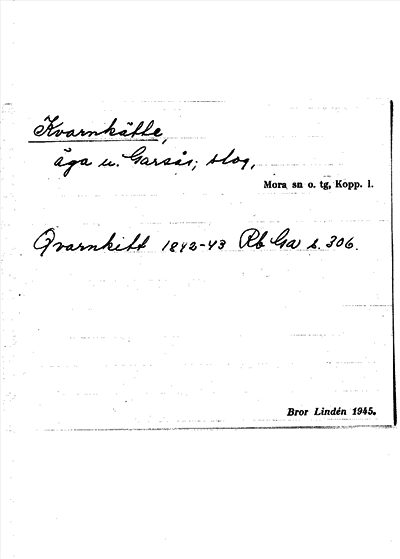 Kvarnkätte,
äga u. Garsås; slog,
Mora sn o. tg, Kopp. l.
Qvarnkitt 1842-43 Rb Ga s. 306.
Bror Lindén 1945.